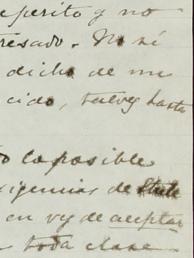 eperito y no
resado. No sé
dicho de me
cido, talvez hasta
to la posible
xigencias de
en vez de aceptar
toda clase